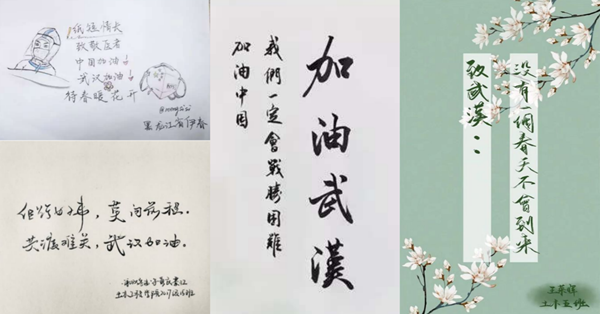 致敬医者
中国加油
武汉加油
待春暖花开
黑龙江省伊春
但行好事，莫问前程.
共渡难关，武汉加油.
加油武漢
我們一定會戰勝困難
加油中国
没有一個春天不會到来
致武漢：